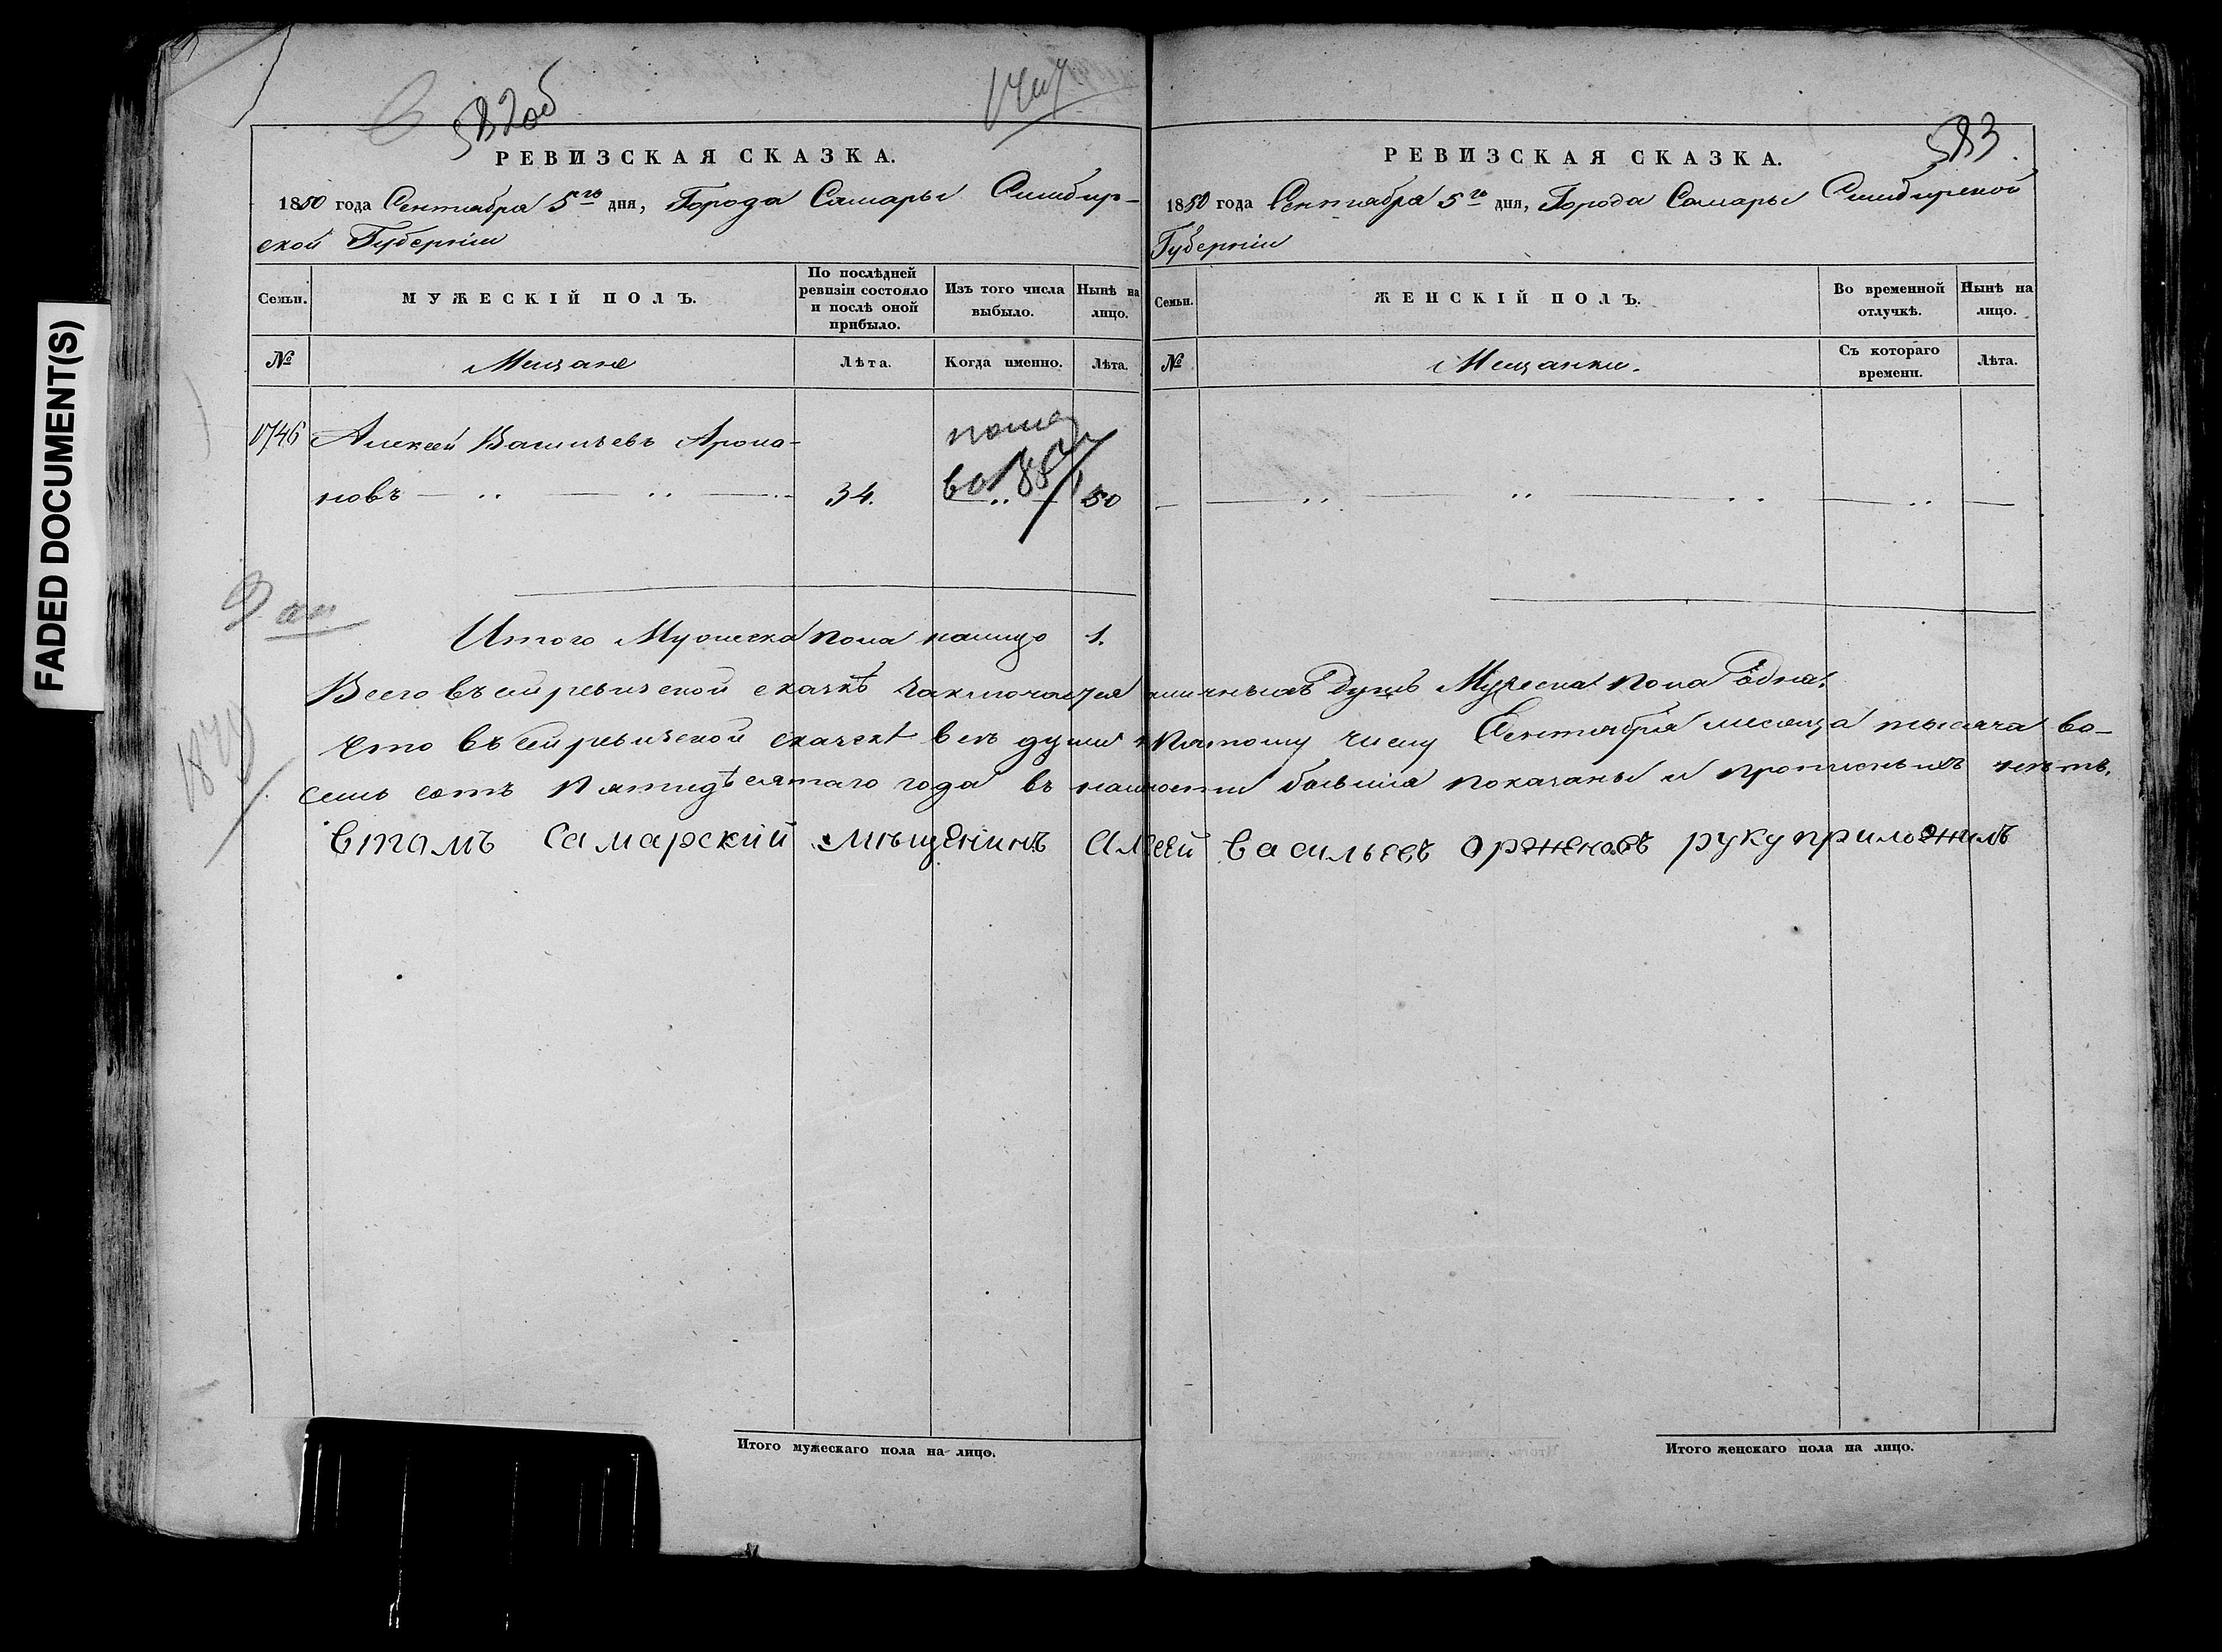 582об
583
РЕВИЗСКАЯ СКАЗКА.
1850 года Сентября 5го дня, Города Самары Симбир-
ской Губерніи
Семьи.
МУЖЕСКІЙ ПОЛЪ.
По послѣдней
ревизіи состояло
и послѣ оной
прибыло.
Изъ того числа
выбыло.
Нынѣ на
лицо.
№
Мещане
Лѣта.
Когда именно.
Лѣта.
1746 Алексей Васильевъ
новъ 34. 50
Итого Мужеска пола налицо 1.
РЕВИЗСКАЯ СКАЗКА.
1850 года Сентября 5го дня, Города Самары Симбирской
Губерніи
Семьи.
ЖЕНСКІЙ ПОЛЪ.
Во временной
отлучкѣ.
Нынѣ на
лицо.
№
Мещанки.
Съ котораго
времени.
Лѣта.
Всего въ сей ревизской сказкѣ заключается наличныхъ Душъ Мужеска пола Одна.
Что въ сей ревизской сказкѣ все души к Пятому числу Сентября месяца тысяча во-
семь сотъ Пятидѣсятаго года въ налиности показаны и прописныхъ нетъ.
Втомъ Самарский мѣщенинъ Алсей васильевъ руку приложилъ
Итого мужескаго пола на лицо.
Итого женскаго пола на лицо.
FADED DOCUMENT(S)